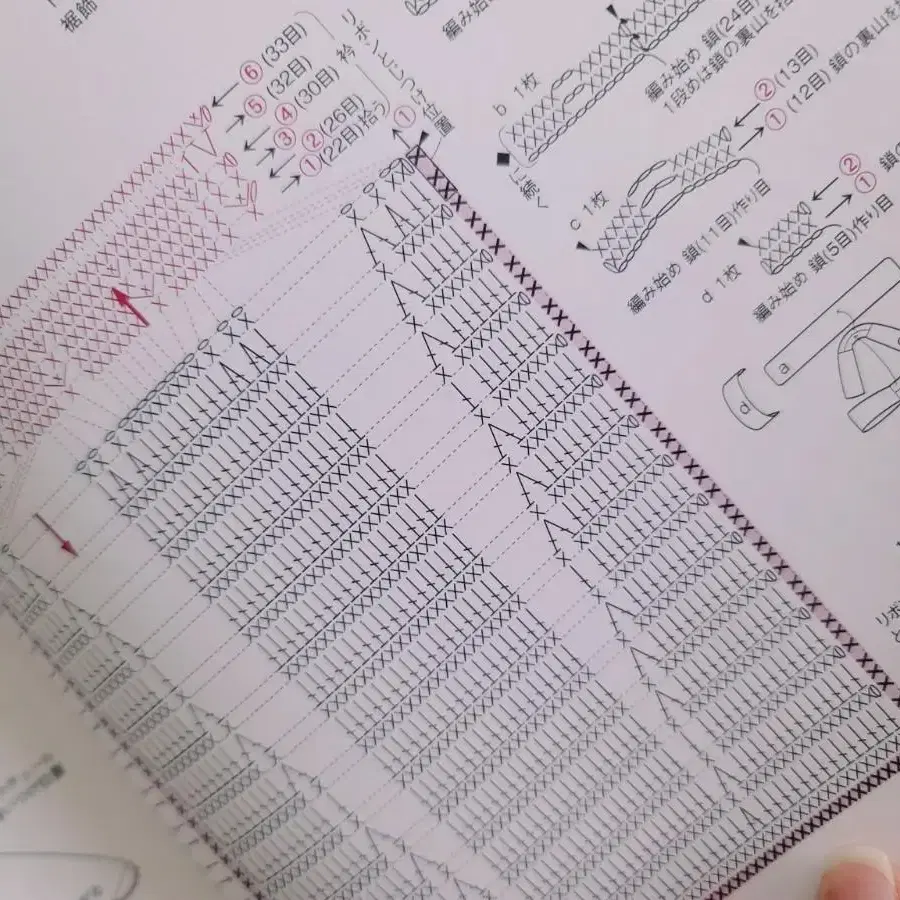 裾飾
⑥(33目)
⑤(32目)
④(30目)
③
②(26目)
①(22目)拾う
衿
リボンとじつけ位置
①
編み始め
b 1枚
編み始め 鎖(24目)
1段めは鎖の裏山を拾
■に続く
②(13目)
①(12目) 鎖の裏山を
c 1枚
編み始め 鎖(11目)作り目
②
① 鎖の
d 1枚
編み始め 鎖(5目)作り目
a
d
リボ
と